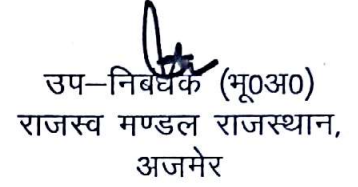 उप–निबंधक (भू०अ०)
राजस्व मण्डल राजस्थान,
अजमेर